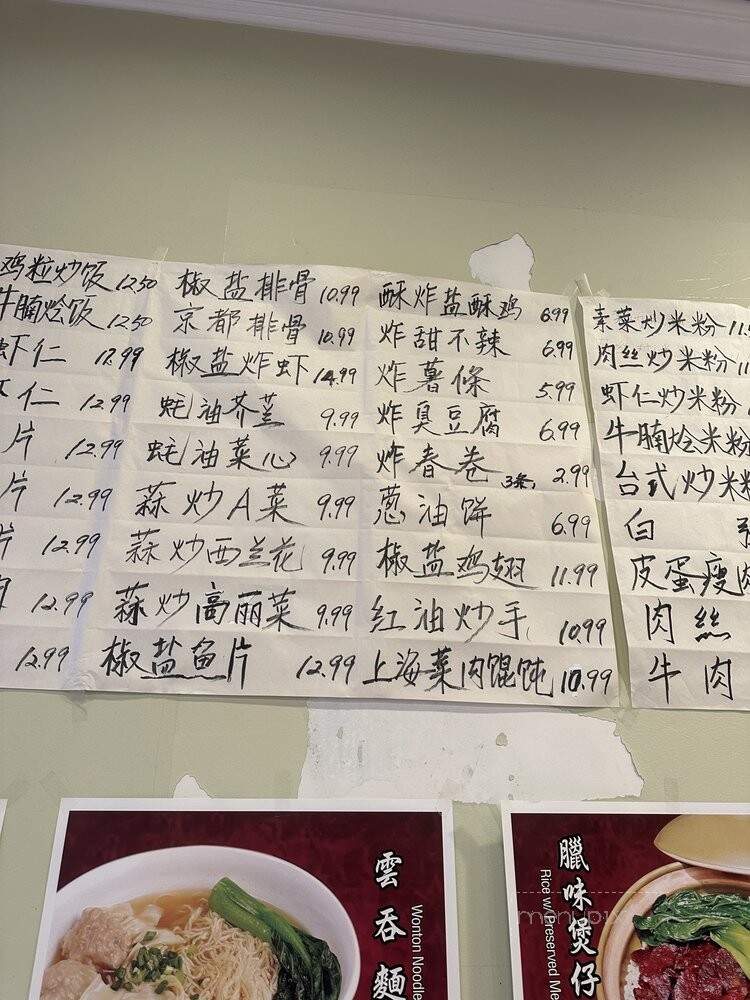 鸡粒炒饭 12.50
牛腩烩饭 12.50
虾仁 12.99
仁 12.99
片 12.99
片 12.99
片 12.99
12.99
12.99
椒盐排骨 10.99
京都排骨 10.99
椒盐炸虾 14.99
蚝油芥兰 9.99
蚝油菜心 9.99
蒜炒A菜 9.99
蒜炒西兰花 9.99
蒜炒高丽菜 9.99
椒盐鱼片 12.99
酥炸盐酥鸡 6.99
炸甜不辣 6.99
炸薯條 5.99
炸臭豆腐 6.99
炸春卷 3条 2.99
葱油饼 6.99
椒盐鸡翅 11.99
红油炒手 10.99
上海菜肉馄饨 10.99
素菜炒米粉 11.
肉丝炒米粉 11
虾仁炒米粉
牛腩烩米粉
台式炒米粉
白
皮蛋瘦肉
肉絲
牛肉
雲吞麵
Wonton Noodle
臘味煲仔
Rice w/ Preserved Me
menupix